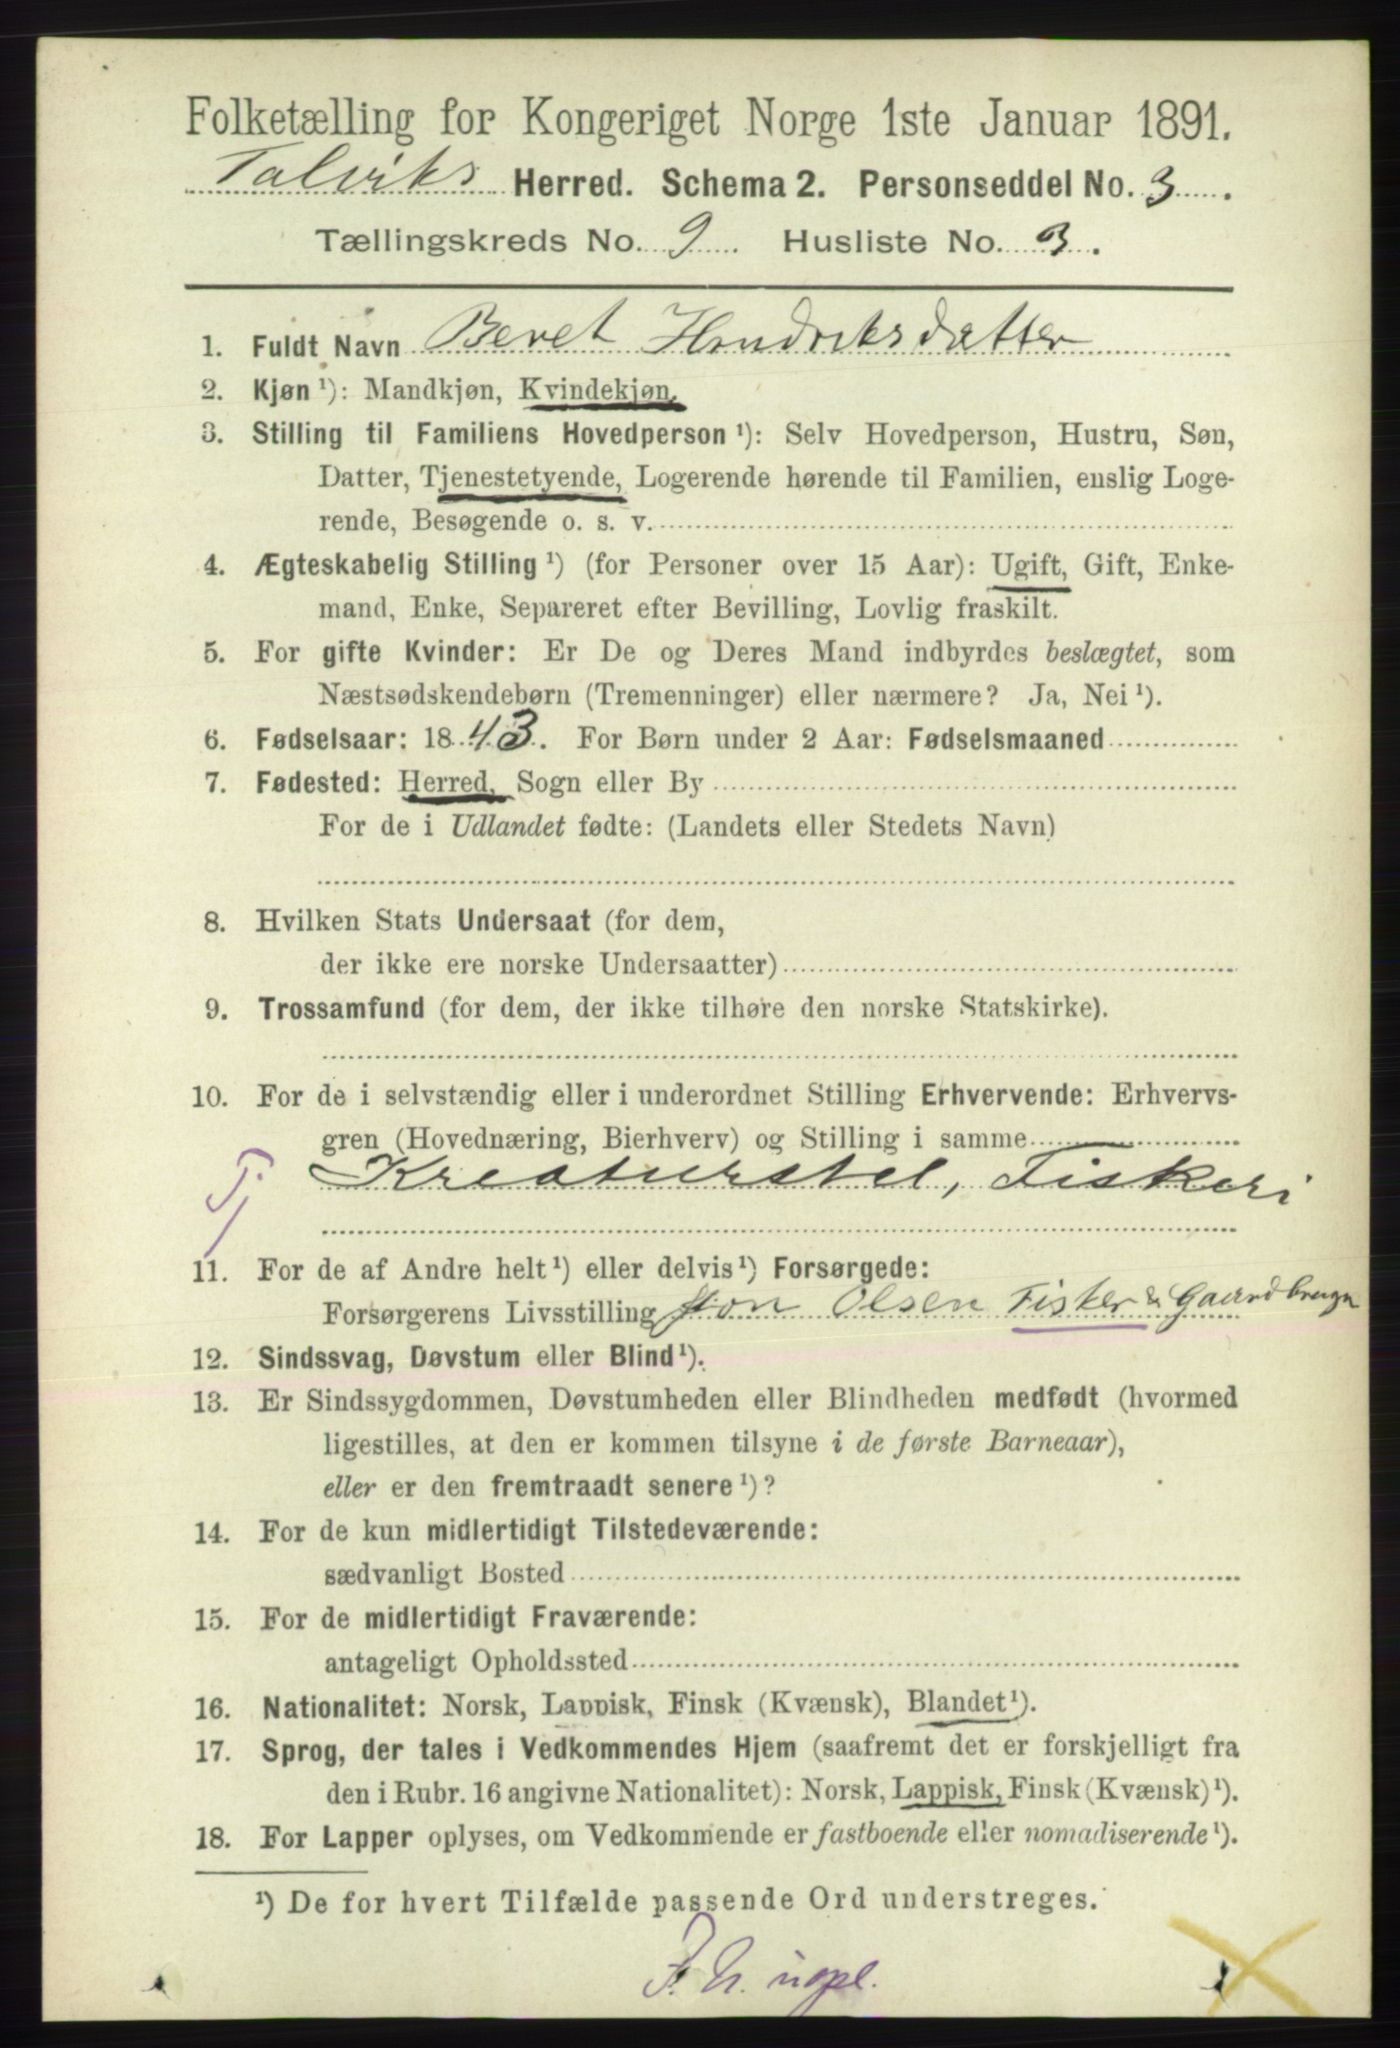 Folketælling for Kongeriget Norge 1ste Januar 1891.
Talviks Herred. Schema 2. Personseddel No. 3.
Tællingskreds No. 9. Husliste No. 3.
1. Fuldt Navn Beret Hendriksdatter
2. Kjøn ¹): Mandkjøn, Kvindekjøn.
3. Stilling til Familiens Hovedperson ¹): Selv Hovedperson, Hustru, Søn,
Datter, Tjenestetyende, Logerende hørende til Familien, enslig Loge-
rende, Besøgende o. s. v.
4. Ægteskabelig Stilling ¹) (for Personer over 15 Aar): Ugift, Gift, Enke-
mand, Enke, Separeret efter Bevilling, Lovlig fraskilt.
5. For gifte Kvinder: Er De og Deres Mand indbyrdes beslægtet, som
Næstsødskendebørn (Tremenninger) eller nærmere? Ja, Nei ¹).
6. Fødselsaar: 1843. For Børn under 2 Aar: Fødselsmaaned
7. Fødested: Herred, Sogn eller By
For de i Udlandet fødte: (Landets eller Stedets Navn)
8. Hvilken Stats Undersaat (for dem,
der ikke ere norske Undersaatter)
9. Trossamfund (for dem, der ikke tilhøre den norske Statskirke).
10. For de i selvstændig eller i underordnet Stilling Erhvervende: Erhvervs-
gren (Hovednæring, Bierhverv) og Stilling i samme
Tj Kreaturstel, Fiskeri
11. For de af Andre helt ¹) eller delvis ¹) Forsørgede:
Forsørgerens Livsstilling Jon Olsen Fisker & Gaardbruger
12. Sindssvag, Døvstum eller Blind ¹).
13. Er Sindssygdommen, Døvstumheden eller Blindheden medfødt (hvormed
ligestilles, at den er kommen tilsyne i de første Barneaar),
eller er den fremtraadt senere ¹)?
14. For de kun midlertidigt Tilstedeværende:
sædvanligt Bosted
15. For de midlertidigt Fraværende:
antageligt Opholdssted
16. Nationalitet: Norsk, Lappisk, Finsk (Kvænsk), Blandet ¹).
17. Sprog, der tales i Vedkommendes Hjem (saafremt det er forskjelligt fra
den i Rubr. 16 angivne Nationalitet): Norsk, Lappisk, Finsk (Kvænsk) ¹).
18. For Lapper oplyses, om Vedkommende er fastboende eller nomadiserende ¹).
¹) De for hvert Tilfælde passende Ord understreges.